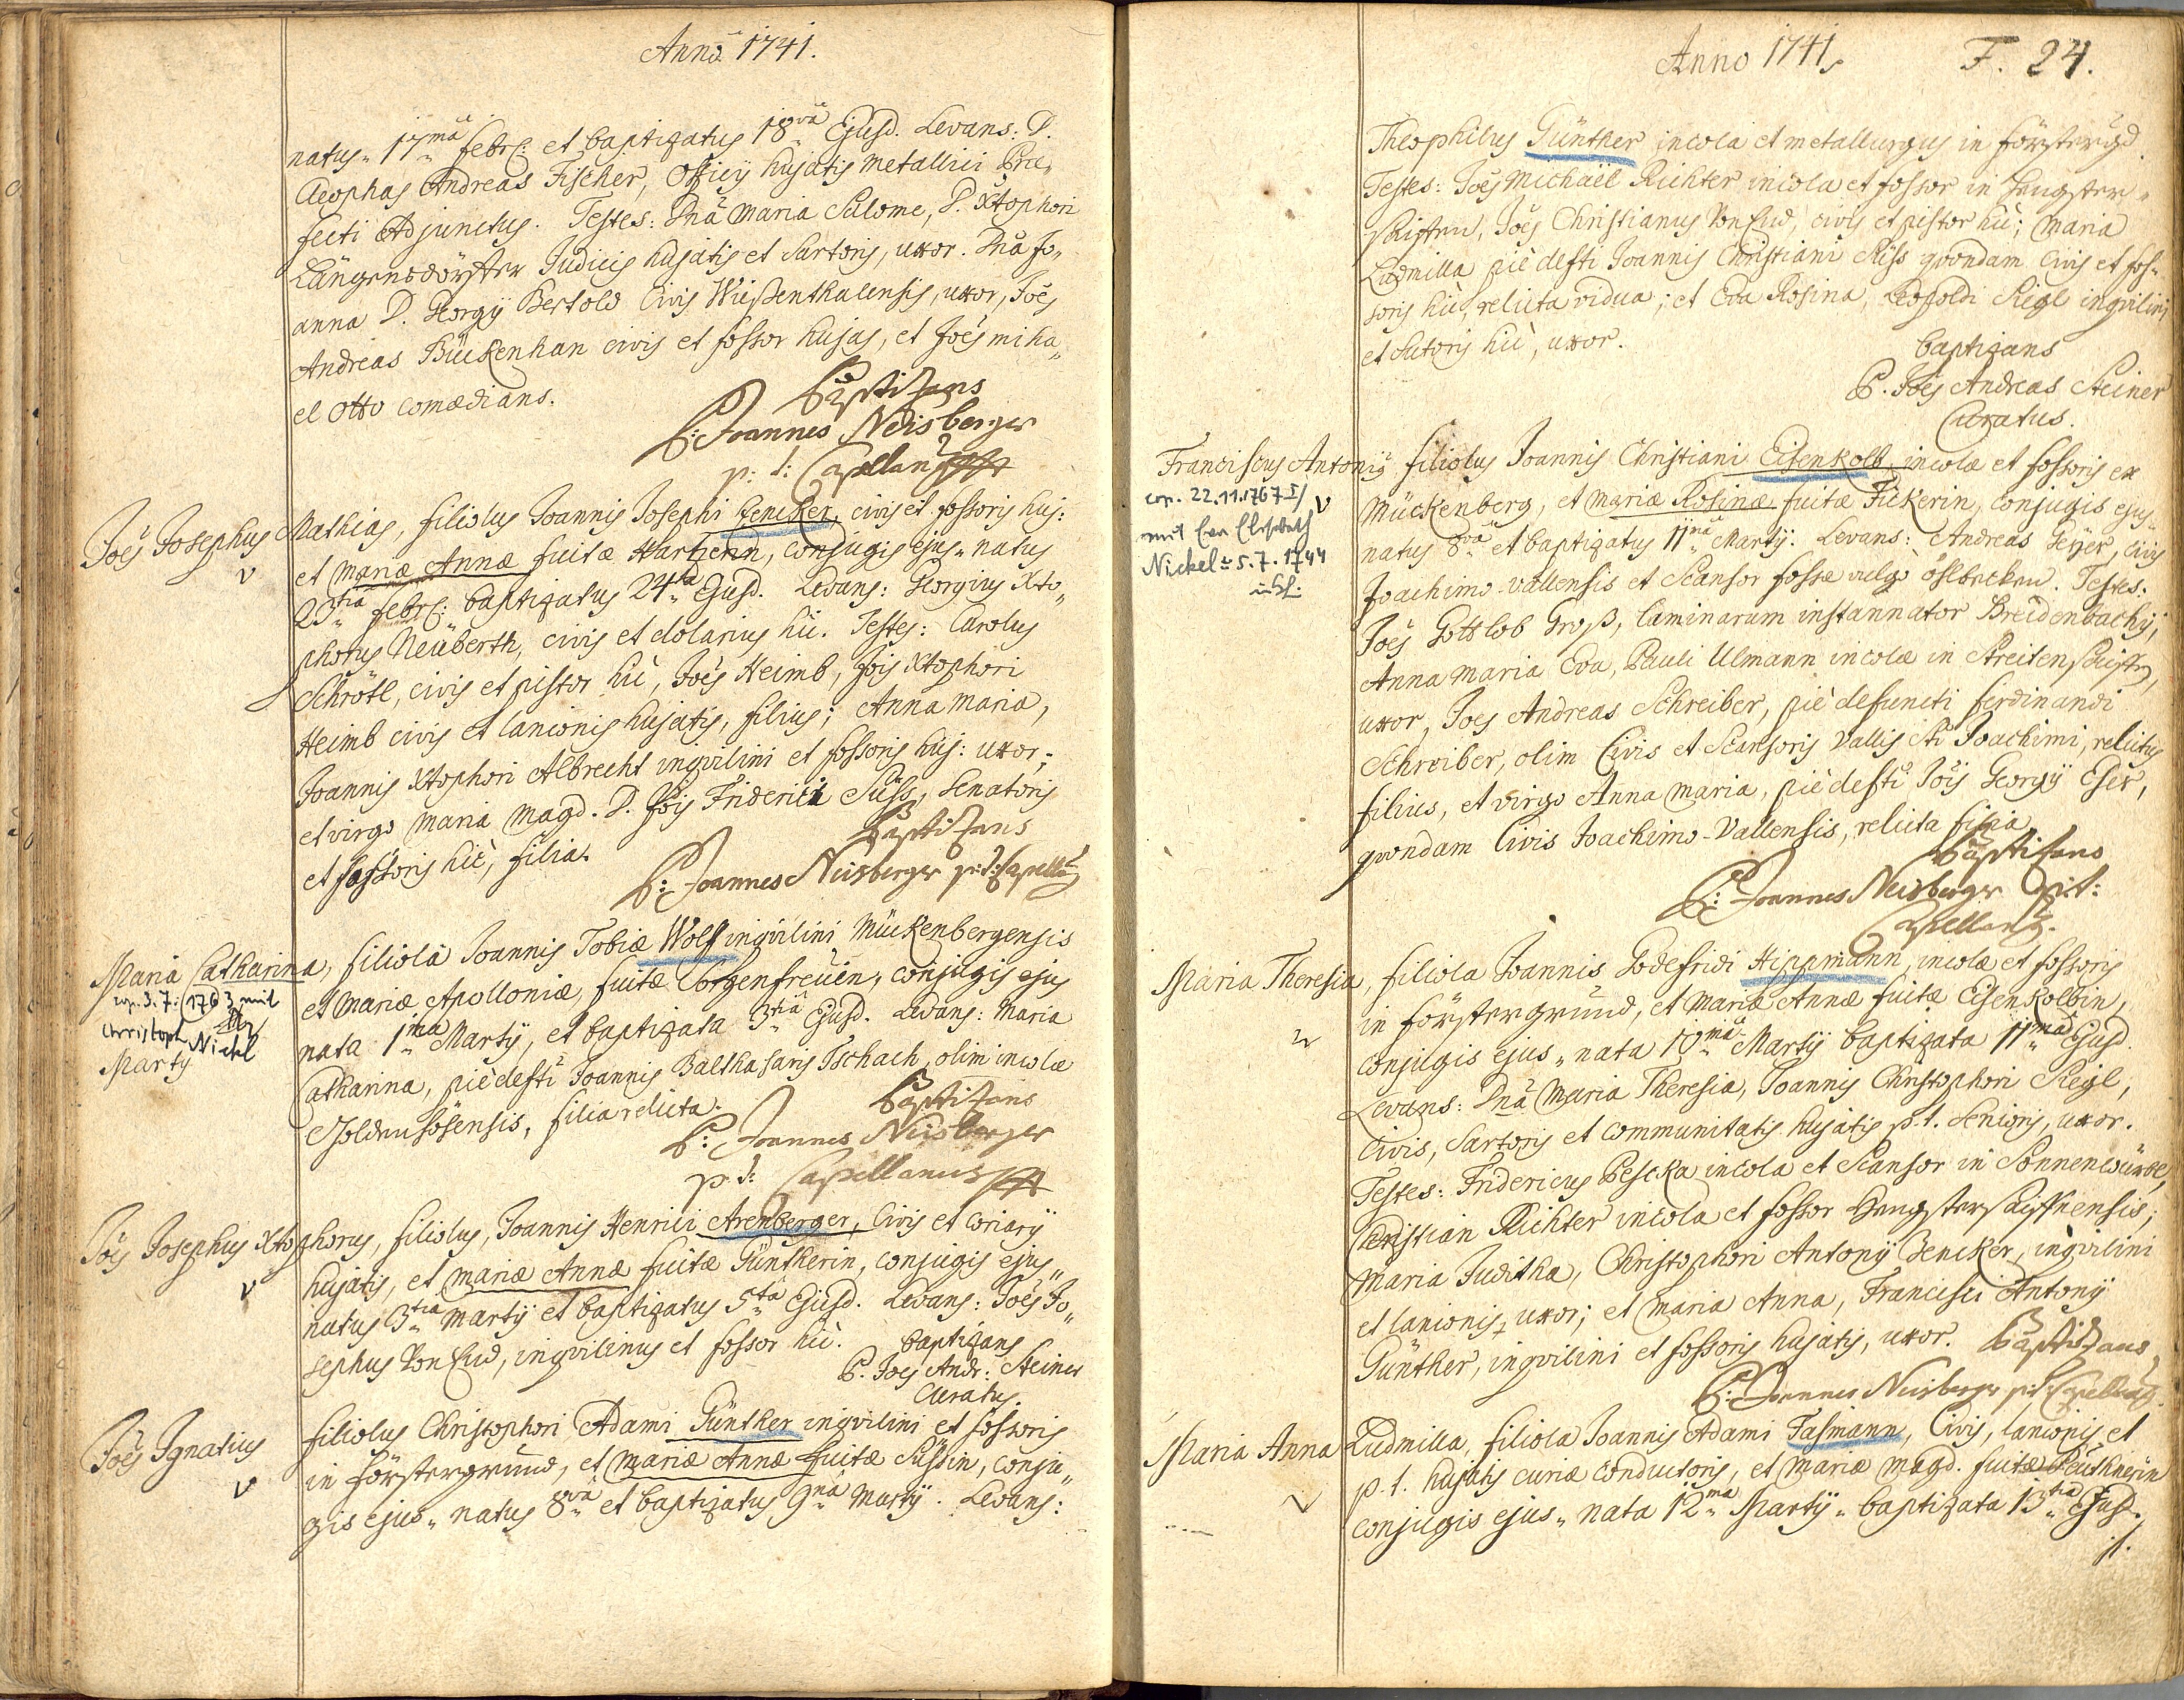 Anno 1741.
natus 17ma Febr: et baptizatus 18va Ejusd. Levans: D.
Cleophas Andreas Fischer, Officij hujatis metallici Præ-
fecti Adjunctus. Testes: Dnã Maria Salome, D. Xtophori
Längensdörfter Judicis hujatis et Sartoris, uxor. Dnã Jo-
anna D. Georgÿ Bertold Civis Wießenthalensis, uxor, Joẽs
Andreas Bückenhan civis et fossor hujas, et Joẽs micha-
el Otto comædians.
Baptizans
P: Joannes Neisberger
p: t: Capellanus
Joẽs Josephus Mathias, filiolus Joannis Josephi Zencker, civis et fossoris huj:
et mariæ Annæ fuitæ Hartlerin, conjugis ejus natus
23tia Febr: baptizatus 24ta Ejusd. Levans: Georgius Xto-
phorus Neuberth, civis et dolarius hic. Testes: Carolus
Schrötl, civis et pistor hic, Joẽs Heimb, Jois Xtophori
Heimb civis et lanionis hujatis, filius; Anna Maria,
Joannis Xtophori Albrecht inqvilini et fossoris huj: uxor;
et virgo Maria Magd. D. Jois Friderici Süss, Senatoris
et fossoris hic, filia.
Baptizans
P: Joannes Neisberger p: t: Capellan9
Maria Catharina, filiola Joannis Tobiæ Wolf inqvilini Mückenbergensis
cop. 3.7.1763 mit
Christoph Nickl
Marty
et Mariæ Apolloniæ, fuitæ Sorgenfreüin, conjugis ejus
nata 1ma Martÿ, et baptizata 3tia Ejusd. Levans: Maria
Catharina, piè defti Joannis Balthasaris Tschach, olim incolæ
Goldenhösensis, filia relicta.
Baptizans
P: Joannes Neisberger
p: t: Capellanus
Joẽs Josephus Xtophorus, filiolus, Joannis Henrici Arenberger, Civis et Coriarÿ
hujatis, et mariæ Annæ fuitæ Güntherin, conjugis ejus
natus 3tia Martÿ et baptizatus 5ta Ejusd. Levans: Joẽs Jo-
sephus Von End, inqvilinus et fossor hic.
baptizans
P. Joẽs Andr: Steiner
Curatus.
Joẽs Ignatius filiolus Christophori Adami Günther inqvilini et fossoris
in Förstergrund, et Mariæ Annæ fuitæ Süssin, conju-
gis ejus natus 8va et baptizatus 9na Martÿ. Levans:
Anno 1741. F. 24.
Theophilus Günther incola et metallurgus in Förstergrd.
Testes: Joẽs Michael Richter incola et fossor in Hengster-
skisten, Joẽs Christianus Von End, civis et pistor hic; Maria
Ludmilla piè defti Joannis Christiani Riss qvondam Civis et fos-
soris hic, relicta vidua; et Eva Rosina, Leopoldi Riegl inqvilini
et Sutoris hic, uxor.
baptizans
P. Joẽs Andreas Steiner
Curatus.
Franciscus Antoniꝰ filiolus Joannis Christiani Eisenkolb, incolæ et fossoris ex
cop. 22.11.1767 I/
mit Eva Elisabeth
Nickel * 5.7.1744
Mückenberg, et mariæ Rosinæ fuitæ Fickerin, conjugis ejus
natus 8va et baptizatus 11ma Martÿ. Levans: Andreas Geyer, civis
Joachimo-Vallensis et Scansor fossæ vulgo ölbecken. Testes:
Joẽs Gottlob Groß, laminarum instannator Breidenbachÿ,
Anna Maria Eva, Pauli Ulmann incolæ in Streitenseiffen,
uxor, Joẽs Andreas Schreiber, piè defuncti Ferdinandi
Schreiber, olim Civis et Scansoris Vallis Sti Joachimi, relictus
filius, et virgo Anna Maria, piè defti Jois Georgÿ Eser,
qvondam Civis Joachimo-Vallensis, relicta filia
Baptizans
P: Joannes Neisberger p: t:
Capellanus.
Maria Theresia, filiola Joannis Godefridi Hippmann, incolæ et fossoris
in Förstergrund, et Mariæ Annæ fuitæ Eisenkolbin,
conjugis ejus nata 10ma Martÿ baptizata 11ma Ejusd.
Levans: Dnã Maria Theresia, Joannis Christophori Riegl,
Civis, Sartoris et communitatis hujatis p.t. Senioris, uxor.
Testes: Fridericus Pescka incola et Scansor in Sonnenwürbl,
Christian Richter incola et fossor Hengsterskiffnensis;
Maria Juditha, Christophori Antonÿ Zencker, inqvilini
et lanionis, uxor; et Maria Anna, Francisci Antonÿ
Günther, inqvilini et fossoris hujatis, uxor. Baptizans
P: Joannes Neisberger p: t: Capellan9
Maria Anna Ludmilla, filiola Joannis Adami Tasmann, Civis, lanionis et
p.t. hujatis curiæ conductoris, et Mariæ Magd. fuitæ Leuthnerin
conjugis ejus nata 12ma Martÿ baptizata 13tia Ejusd.